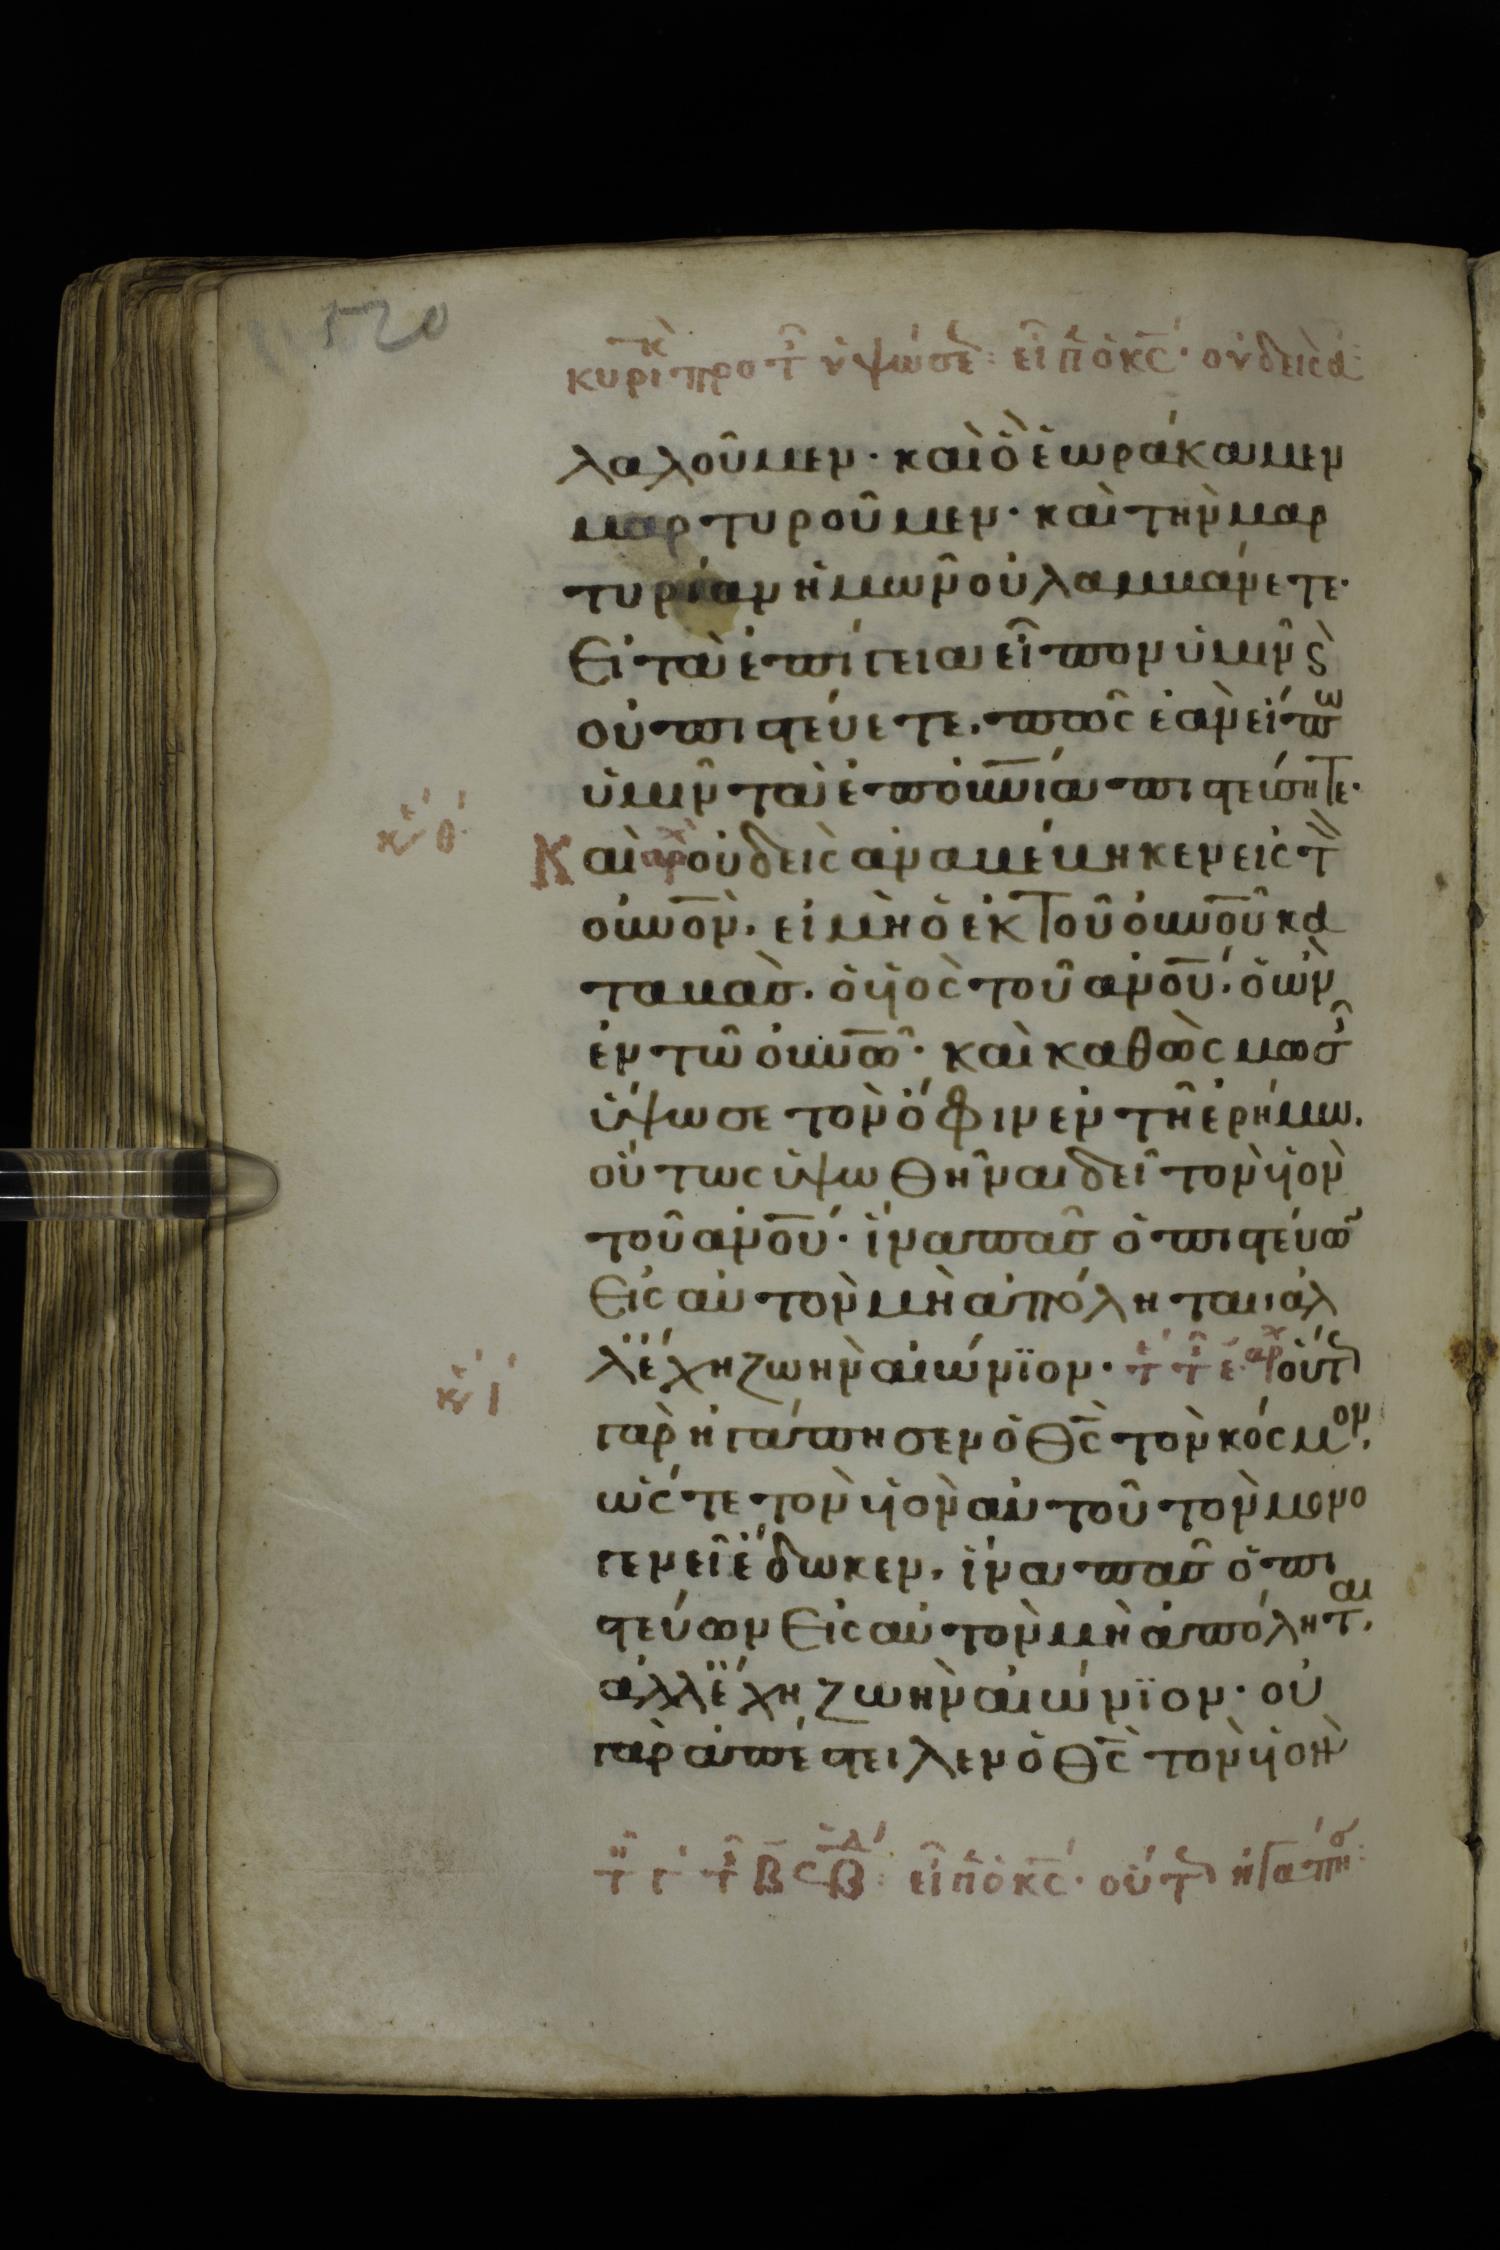 520
κυριακ προ τ ὑψώσε: εἶπ ὁ κς· οὐδεὶς ἀ
λαλοῦμεν· καὶ ὃ ἑωράκαμεν
μαρτυροῦμεν· καὶ τὴν μαρ
τυρίαν ἡμῶν οὐ λαμβάνετε·
Εἰ τὰ ἐπίγεια εἶπον ὑμῖν ϛ
οὐ πιστεύετε, πῶς ἐὰν εἴπω
ὑμῖν τὰ ἐπουνία πιστεύσητε·
κε θ
Καὶ αρχ οὐδεὶς ἀναβέβηκεν εἰς τ
οὐνον, εἰ μὴ ὁ ἐκ τοῦ οὐνου κα
ταβὰς, ὁ υἱὸς τοῦ ανου, ὁ ὢν
ἐν τῶ οὐνω· καὶ καθὼς μωσ
ὕψωσε τὸν ὄφιν ἐν τῆ ἐρήμω,
οὕτως ὑψωθῆναι δεῖ τὸν υἱὸν
τοῦ ανου· ἵνα πᾶς ὁ πιστεύω
Εἰς αὐτὸν μὴ ἀπόληται, ἀλ
λ ἔχη ζωὴν αἰώνϊον· τ τ ε αρχ οὕτ
κε ι
γὰρ ἠγάπησεν ὁ θς τὸν κόσμον,
ὥστε τὸν υἱὸν αὐτοῦ τὸν μονο
γενεῖ ἔδωκεν, ἵνα πᾶς ὁ πι
στεύων Εἰς αὐτὸν μὴ ἀπόληται,
ἀλλ ἔχη ζωὴν αἰώνϊον· οὐ
γὰρ ἀπέστειλεν ὁ θς τὸν υἱὸν
τ γ τ β ς β: εἶπ ὁ κς· οὕτ ἠγάπησ: